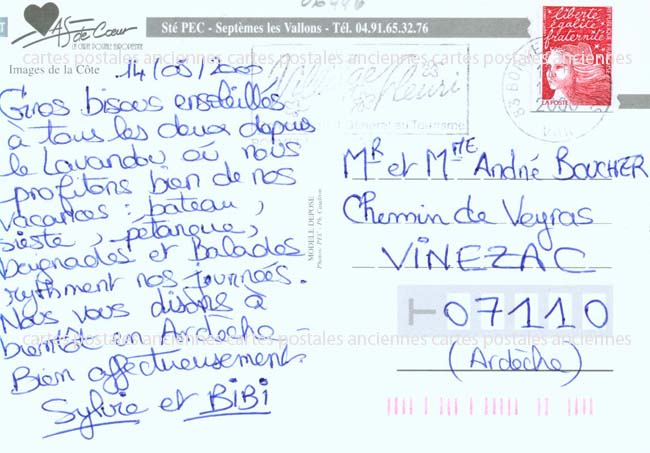 As de Cœur
LA CARTE POSTALE EUROPEENNE
Sté PEC - Septèmes les Vallons - Tél. 04.91.65.32.76
Images de la Côte
14/08/2000
Gros bisous ensoleillés
à tous les deux depuis
le Lavandou où nous
profitons bien de nos
vacances : bateau,
sieste, pétanque,
baignades et Balades
rythment nos journées.
Nous vous disons à
bientôt en Ardèche -
Bien affectueusement.
Sylvie et BiBi
MODELE DEPOSE
Village
fleuri
au Tourisme
83 BORMES
2000
liberté
égalité
fraternité
LA POSTE
Mr et Mme André BOUCHER
Chemin de Veyras
VINEZAC
07110
(Ardèche)
cartes postales anciennes cartes postales anciennes cartes postales anciennes
cartes postales anciennes cartes postales anciennes cartes postales anciennes